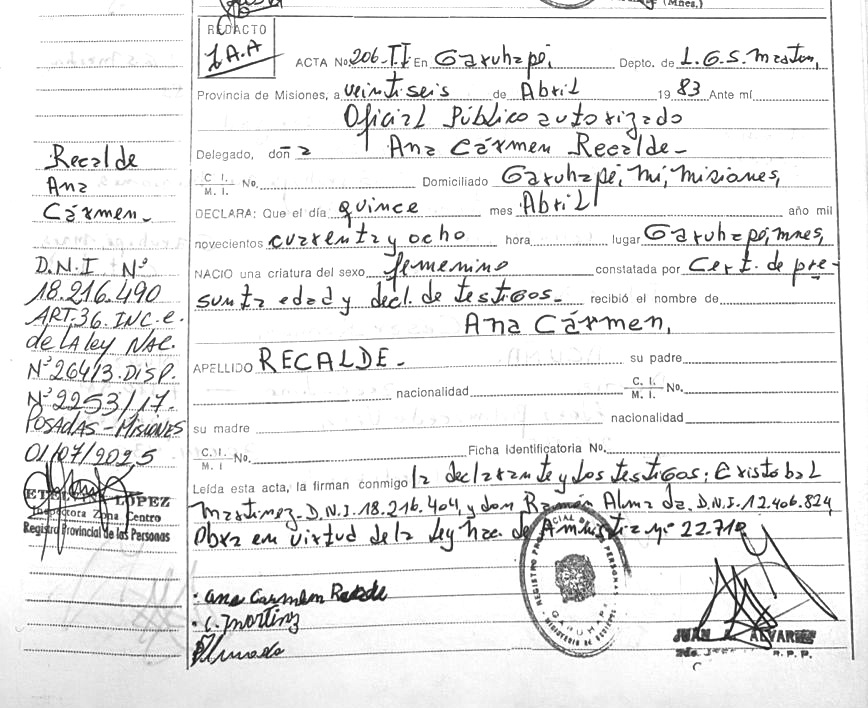 (Mnes.)
REDACTO
J.A.A
ACTA No. 206-II En Garuhapé, Depto. de L.G.S. Martin,
Provincia de Misiones, a veintiseis de Abril 19 83 Ante mí
Oficial Público autorizado
Delegado, don a Ana Cármen Recalde-
C. I.
M. I. No. Domiciliado Garuhapé, Mí, Misiones,
DECLARA: Que el día quince mes Abril año mil
novecientos cuarenta y ocho hora lugar Garuhapé, Mnes,
NACIO una criatura del sexo femenino constatada por Cert. de pre-
sunta edad y decl. de testigos- recibió el nombre de
Ana Cármen,
APELLIDO RECALDE- su padre
nacionalidad C. I.
M. I. No.
su madre nacionalidad
C. I.
M. I No. Ficha Identificatoria No.
Leída esta acta, la firman conmigo la declarante y los testigos: Cristobal
Martinez- D.N.I. 18.216.404, y don Ramón Almada, D.N.I. 12.406.824
Obra en virtud de la ley Nac. de Amnistia Nº 22.710
ana Carmen Recalde
C. Martinz
Almada
JUAN ALVAREZ
R. P. P.
Recalde
Ana
Cármen-
D.N.I Nº
18.216.490
ART.36.INC.e.
de LA Ley NAC.
Nº 26413.DISP.
Nº 2253/17-
POSADAS-MISIONES
01/07/2025
LOPEZ
Inspectora Zona Centro
Registro Provincial de las Personas